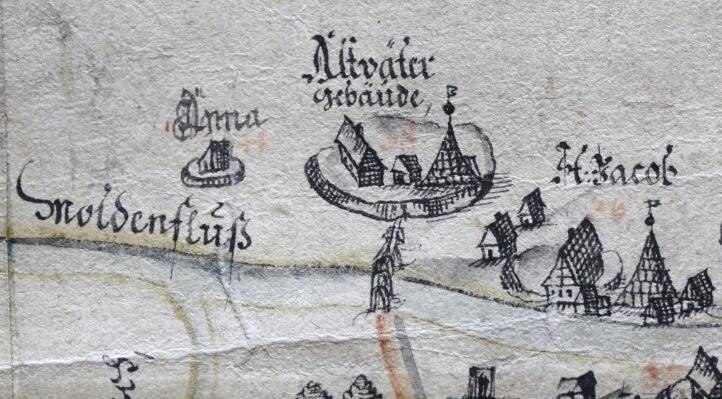 Altväter
gebäude,
Anna
H. Jacob
Moldenfluß